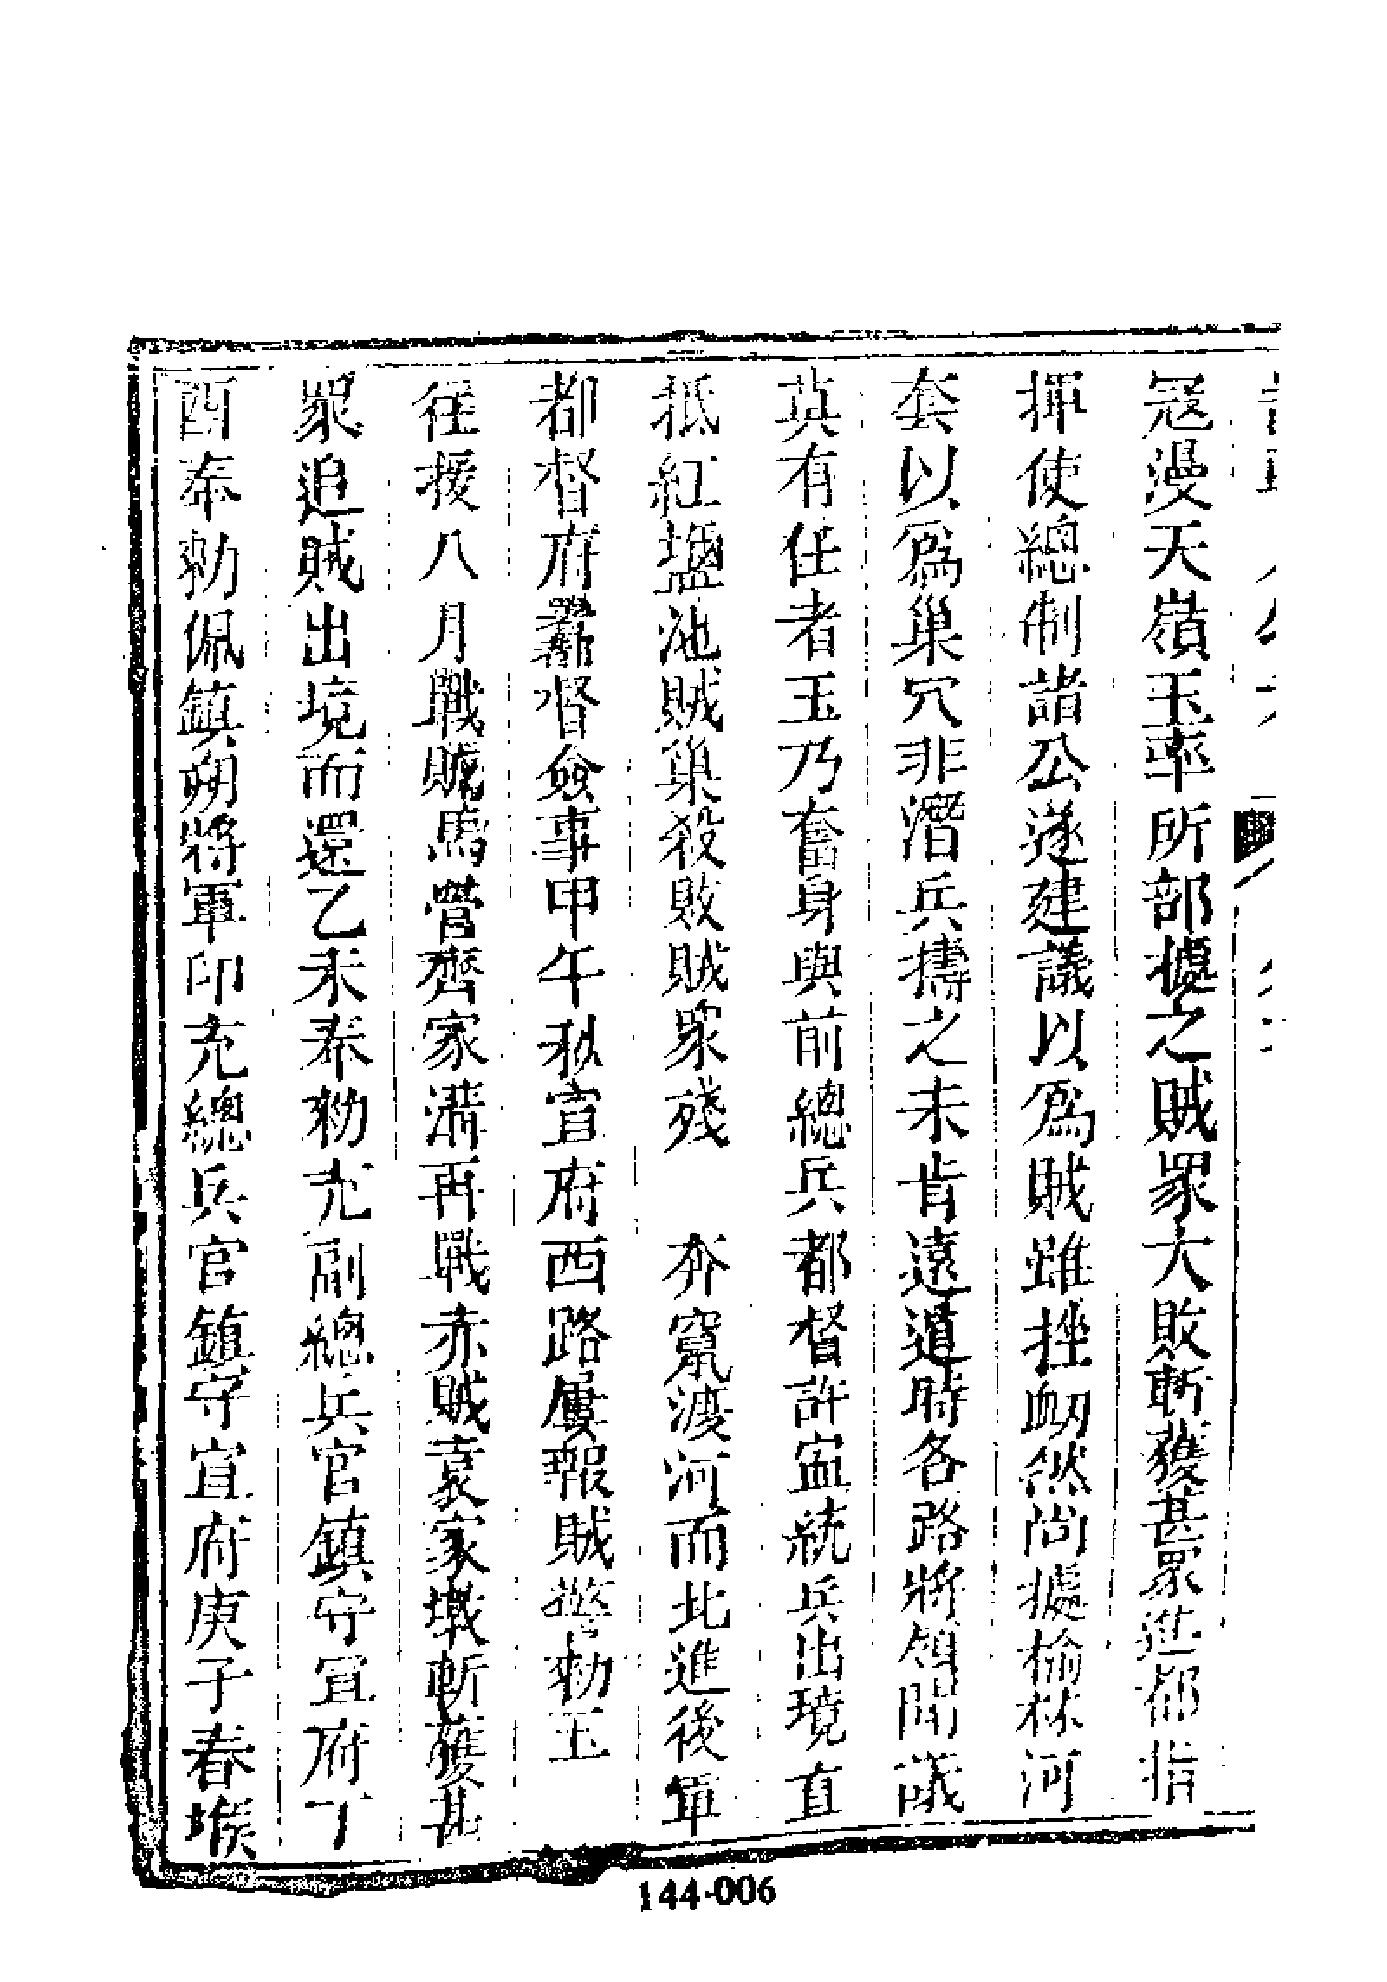 冦漫天嶺玉率所部擾之賊眾大敗斬獲甚眾進都指
揮使總制諸公遂建議以爲賊雖挫衂然尚據榆林河
套以爲巢穴非潛兵擣之未肯遠遁時各路將領聞議
莫有任者玉乃奮身與前總兵都督許寍統兵出境直
抵紅塩池賊巢殺敗賊眾殘 奔竄渡河而北進後軍
都督府署督僉事甲午秋宣府西路屢報賊警勑玉
往援八月戰賺馬營齊家溝再戰赤賊袁家墩斬獲甚
眾追賊出境而還乙未奉勑充副總兵官鎮守宣府丁
酉奉勑佩鎮朔將軍印充總兵官鎮守宣府庚子春堠
144-006